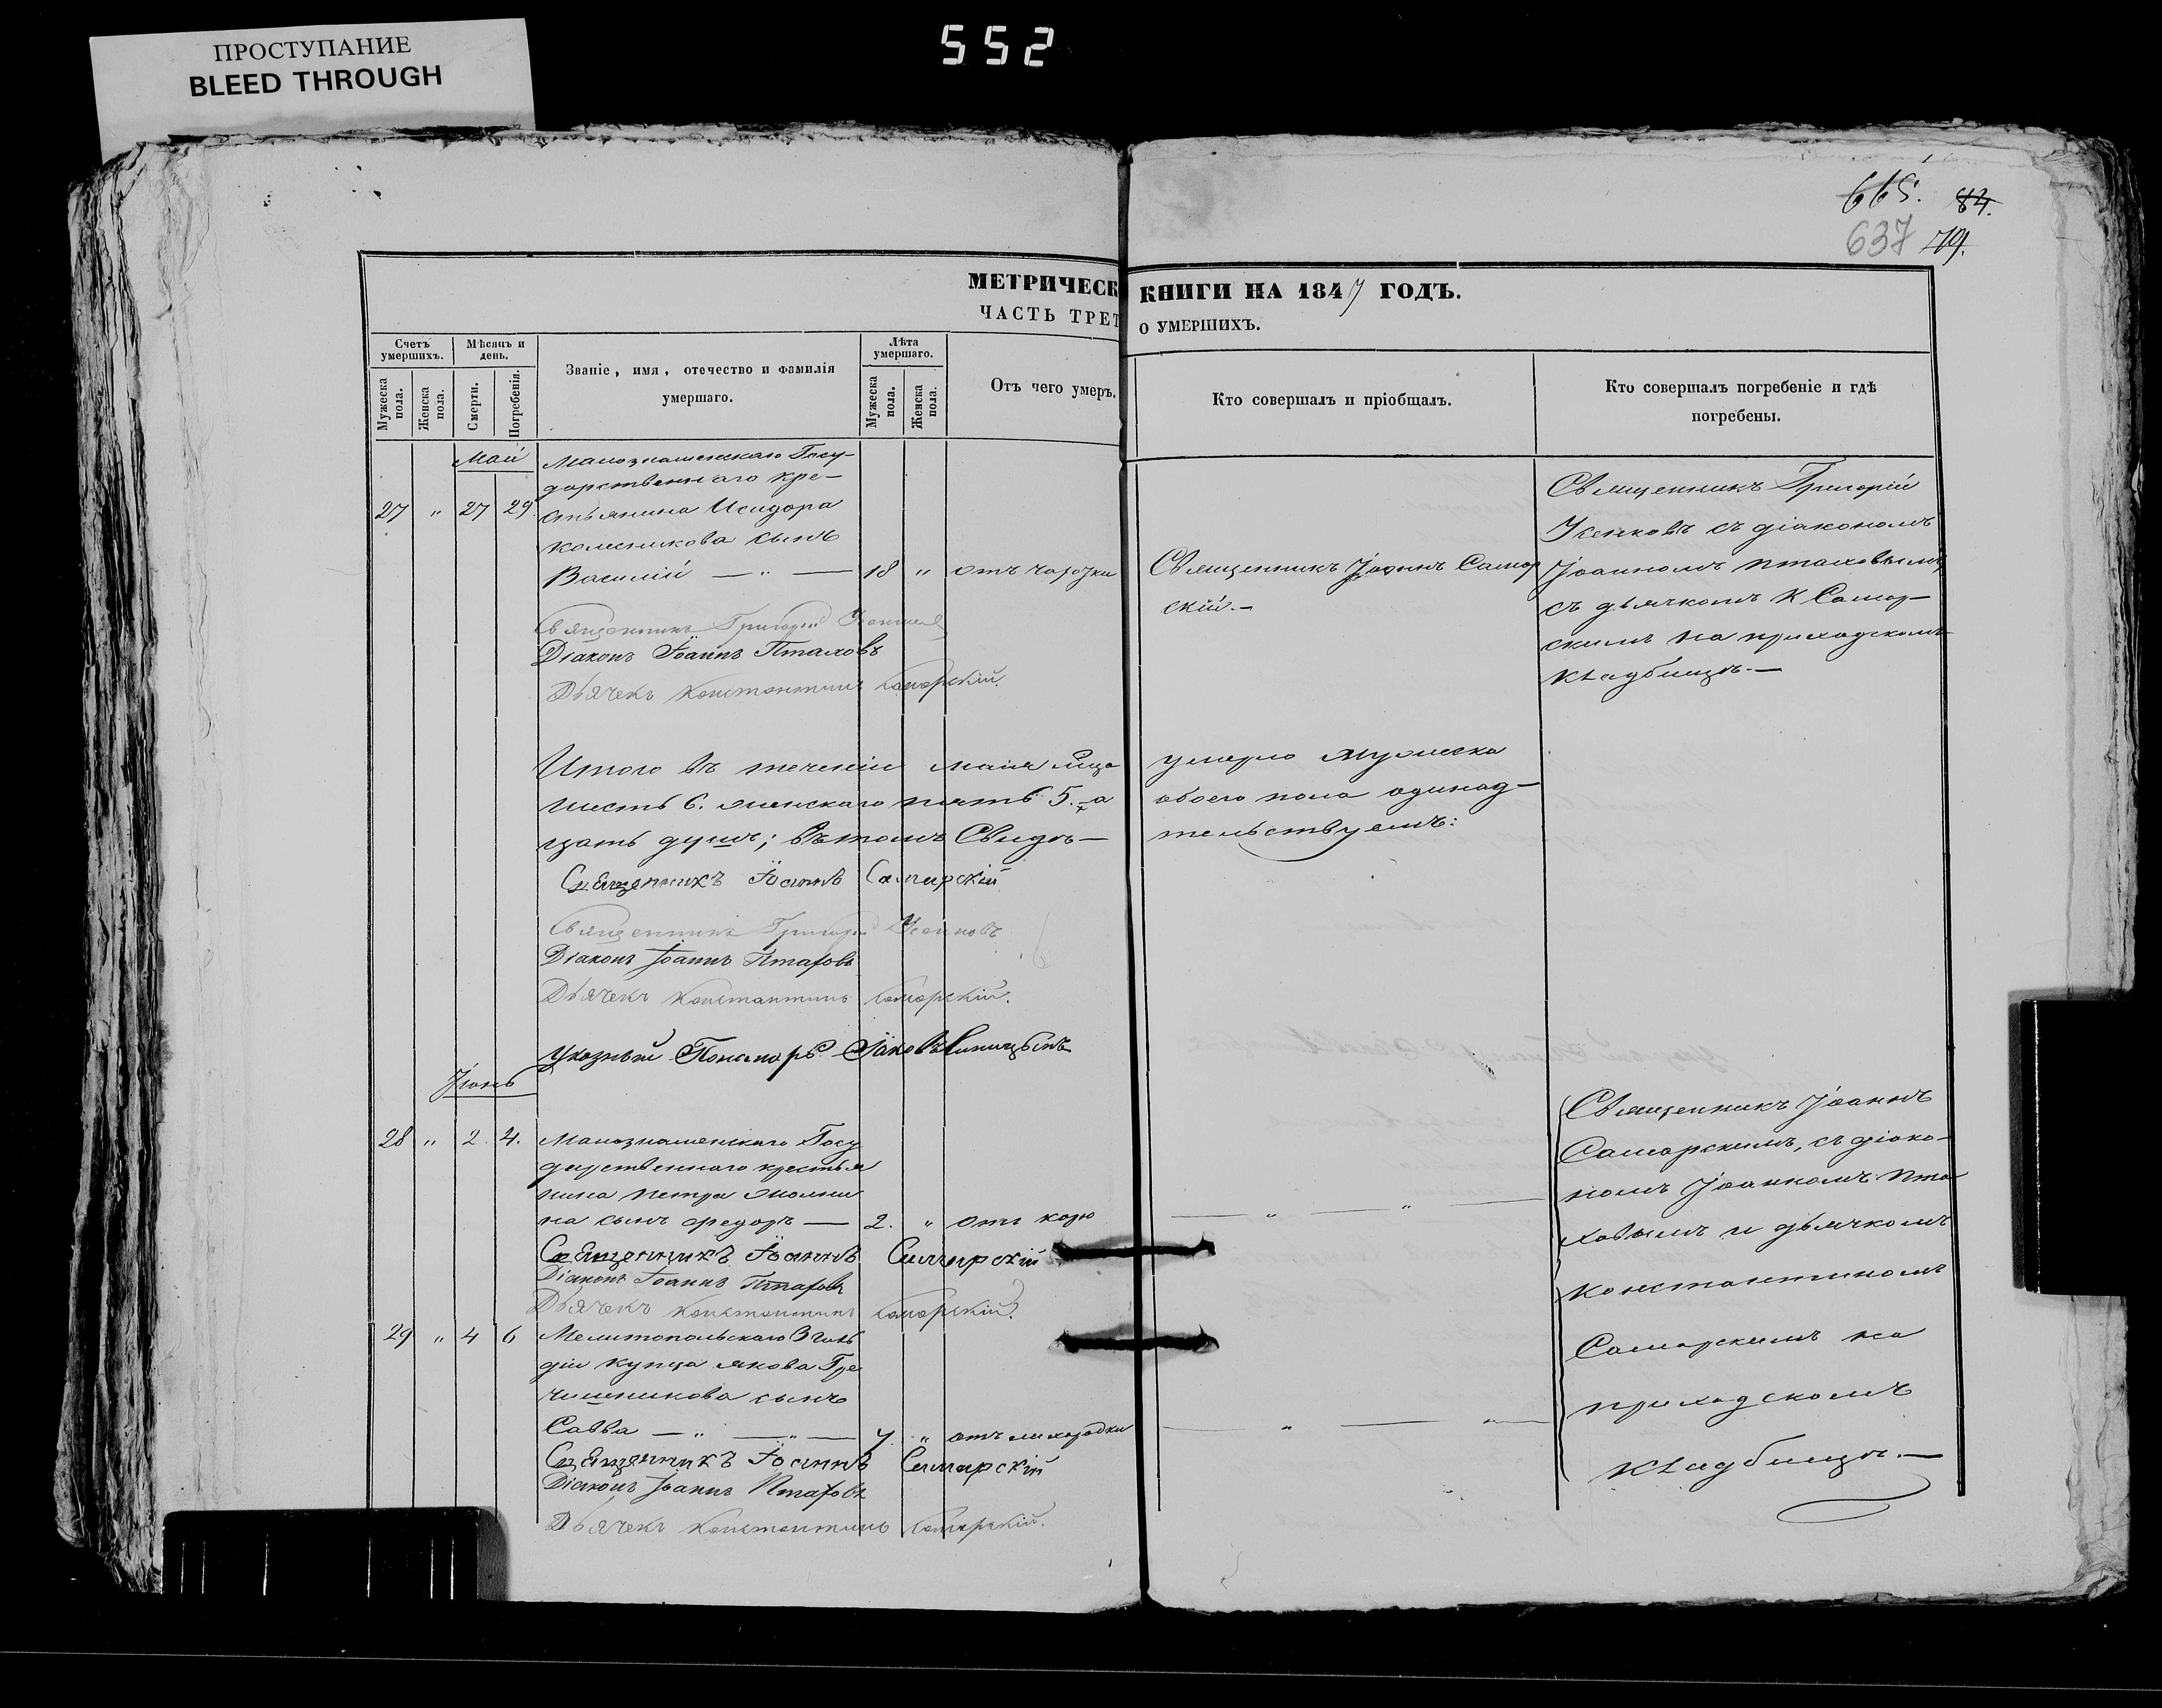 552
ПРОСТУПАНИЕ
BLEED THROUGH
665. 84.
637 79.
МЕТРИЧЕСК КНИГИ НА 1847 ГОДЪ.
ЧАСТЬ ТРЕТ О УМЕРШИХЪ.
Счетъ умершихъ.
Мѣсяцъ и день.
Званіе, имя, отечество и фамилія умершаго.
Лѣта умершаго.
Отъ чего умеръ.
Кто совершалъ и пріобщалъ.
Кто совершалъ погребеніе и гдѣ погребены.
Мужеска пола.
Женска пола.
Смерти.
Погребенія.
Мужеска пола.
Женска пола.
Май
27 " 27 29.
Малознаменскаго Госу-
дарственнаго кре-
стьянина Исидора
Колесникова сынъ
Василій — " — 18 " отъ
Священникъ Іоаннъ Самар
скій.—
Священникъ Григорій
съ діакономъ
Іоанномъ Птаховымъ
съ дьячкомъ К Самар-
скимъ на приходскомъ
кладбищѣ.—
Священникъ Григорій
Діаконъ Іоаннъ Птаховъ
Дьячекъ Константинъ Самарскій.
Итого въ теченіи маія мца умерло мужеска
шесть 6. женскаго пять 5. а обоего пола одинад-
цать душъ; въ томъ свидѣ- тельствуемъ:
Священникъ Іоаннъ Самарскій
Священникъ Григорій
Діаконъ Іоаннъ Птаховъ
Дьячекъ Константинъ Самарскій.
Указный Пономарь Іаковъ Синицынъ
Іюнь
28 " 2. 4.
Малознаменскаго Госу
дарственнаго крестья
нина Петра
на сынъ Федоръ — 2. " отъ корю
Священникъ Іоаннъ Самарскій
Діаконъ Іоаннъ Птаховъ
Дьячекъ Константинъ Самарскій.
29 " 4 6
Мелитопольскаго 3 гиль
діи купца Якова Гре
чишникова сынъ
Савва — " — " — 7. " отъ лихорадки
Священникъ Іоаннъ Самарскій
Діаконъ Іоаннъ Птаховъ
Дьячекъ Константинъ Самарскій.
Священникъ Іоаннъ
Самарскимъ, съ діако-
номъ Іоанномъ Пта
ховымъ и дьячкомъ
Константиномъ
Самарскимъ на
приходскомъ
кладбищѣ.—